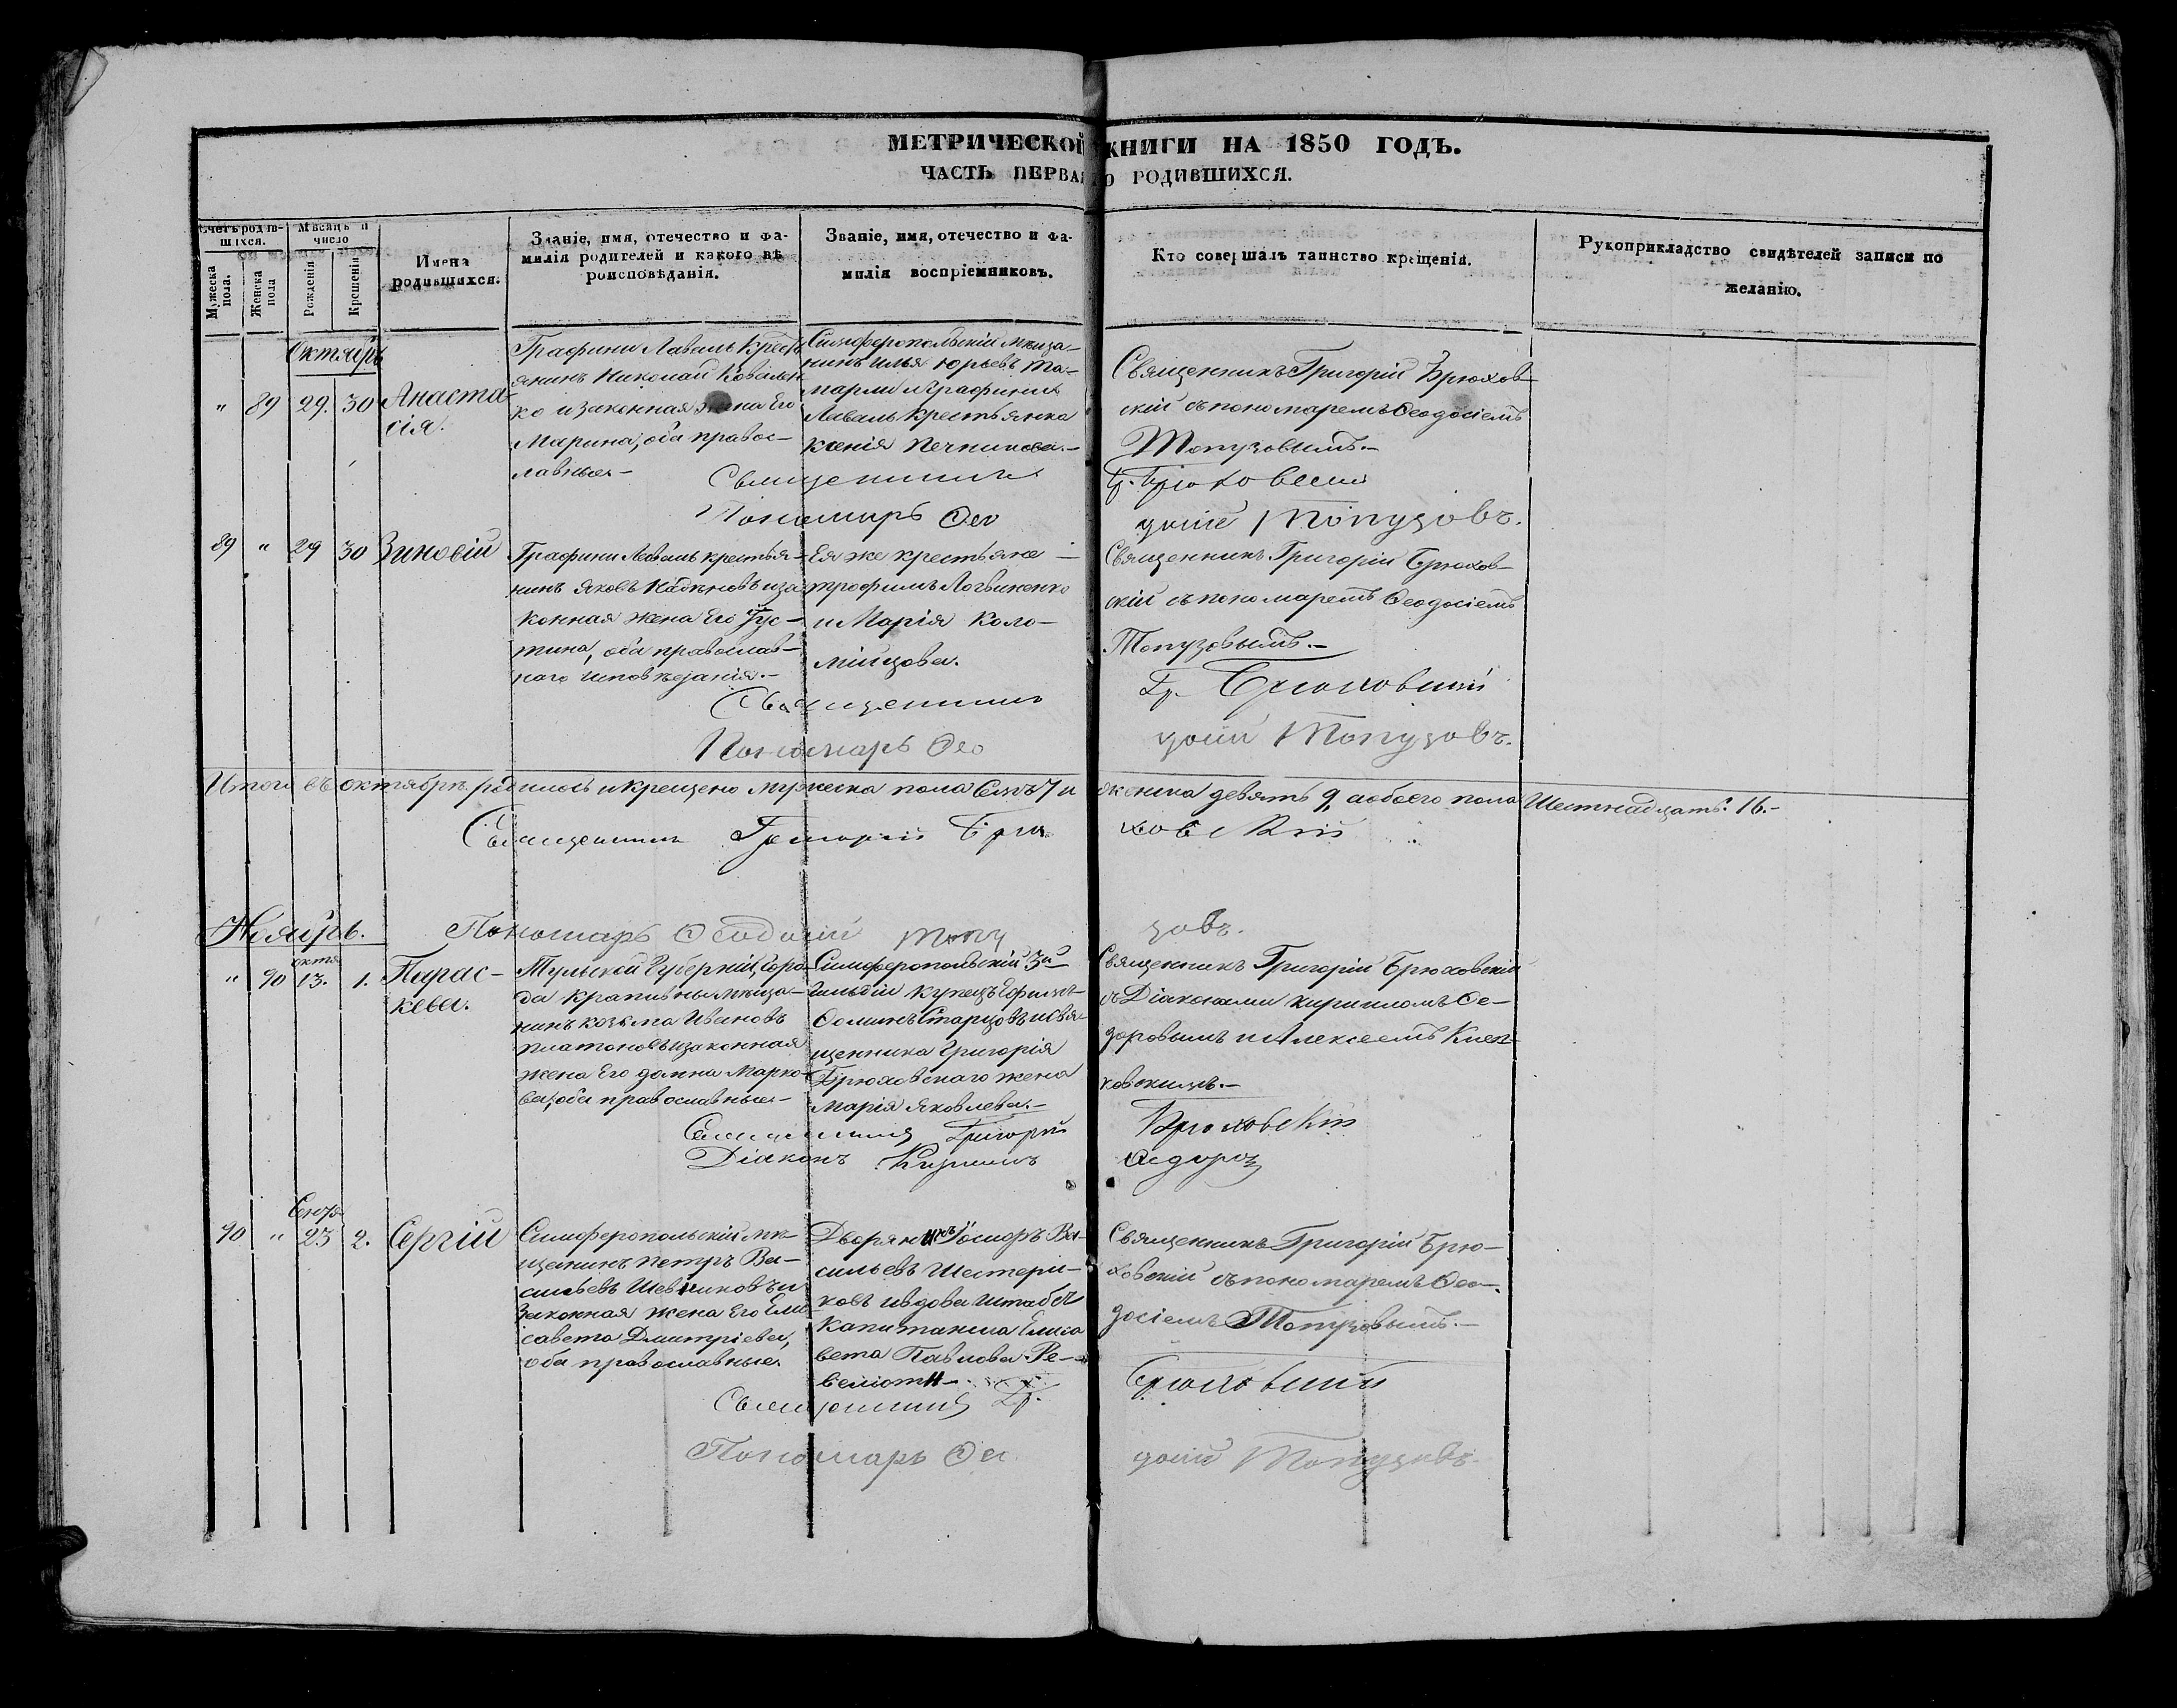 МЕТРИЧЕСКОЙ КНИГИ НА 1850 ГОДЪ.
ЧАСТЬ ПЕРВАЯ О РОДИВШИХСЯ.
Счетъ родившихся.
Мѣсяцъ и число
Мужеска пола.
Женска пола
Рожденія
Крещенія
Имена родившихся.
Званіе, имя, отечество и фамилія родителей и какого вѣроисповѣданія.
Званіе, имя, отечество и фамилія воспріемниковъ.
Кто совершалъ таинство крещенія.
Рукоприкладство свидѣтелей записи по желанію.
Октябрь
" 89 29. 30 Анаста
сія.
Графини Лаваль Крест
янинъ Николай Ковален
ко и законная жена Его
Марина, оба правос-
лавные-
Симферопольскій мѣща-
нинъ Илья Юрьевъ
и Графини
Лаваль крестьянка
Ксенія Печникова.-
Священникъ Григорій Брюхов-
скій съ пономаремъ Феодосіемъ
Топузовымъ.-
Священникъ Гр. Брюховскій
Пономарь Фео досій Топузовъ.
89 " 29 30 Зиновій
Графини Лаваль крестья-
нинъ Яковъ и за
конная жена Его Іус-
тина, оба православ-
наго исповѣданія.-
Ея же крестьяне
трофимъ Логвиненко
и Марія Коло-
мійцова.
Священникъ Григорій Брюхов-
скій съ пономаремъ Феодосіемъ
Топузовымъ.-
Священникъ Гр. Брюховскій
Пономарь Фео досій Топузовъ.
Итого въ октябрѣ родилось и крещено мужеска пола Семь 7 и женска девять 9, а обоего пола Шестнадцать. 16.-
Священникъ Григорій Брю ховскій
Ноябрь.
Пономарь Феодосій Топу зовъ.
" 90 окт. 13. 1. Парас-
кева.
Тульской Губерніи, Горо-
да Крапивны мѣща-
нинъ Козьма Ивановъ
Платоновъ и законная
жена Его домна Марко-
ва, оба православные-
Симферопольскій 3й
Гильдіи купецъ
Старцовъ и свя-
щенника Григорія
Брюховскаго жена
Марія Яковлева.-
Священникъ Григорій Брюховскій
съ Діаконами кирилломъ Фе-
доровымъ и Алексеемъ
Священникъ Григорій Брюховскій
Діаконъ Кириллъ Федоровъ
90 " 23 2. Сергій
Симферопольскій мѣ-
щанинъ Петръ Ва-
сильевъ и
Законная жена Его Ели-
савета Дмитріева,
оба православные
Дворянинъ Ва-
сильевъ Шестери-
ковъ и вдова штабсъ
Капитанша Елиса
вета Павлова Ре-
веліоти-
Священникъ Григорій Брю-
ховскій съ пономаремъ Фео-
досіемъ Топузовымъ.-
Священникъ Гр. Брюховскій
Пономарь Фео досій Топузовъ.